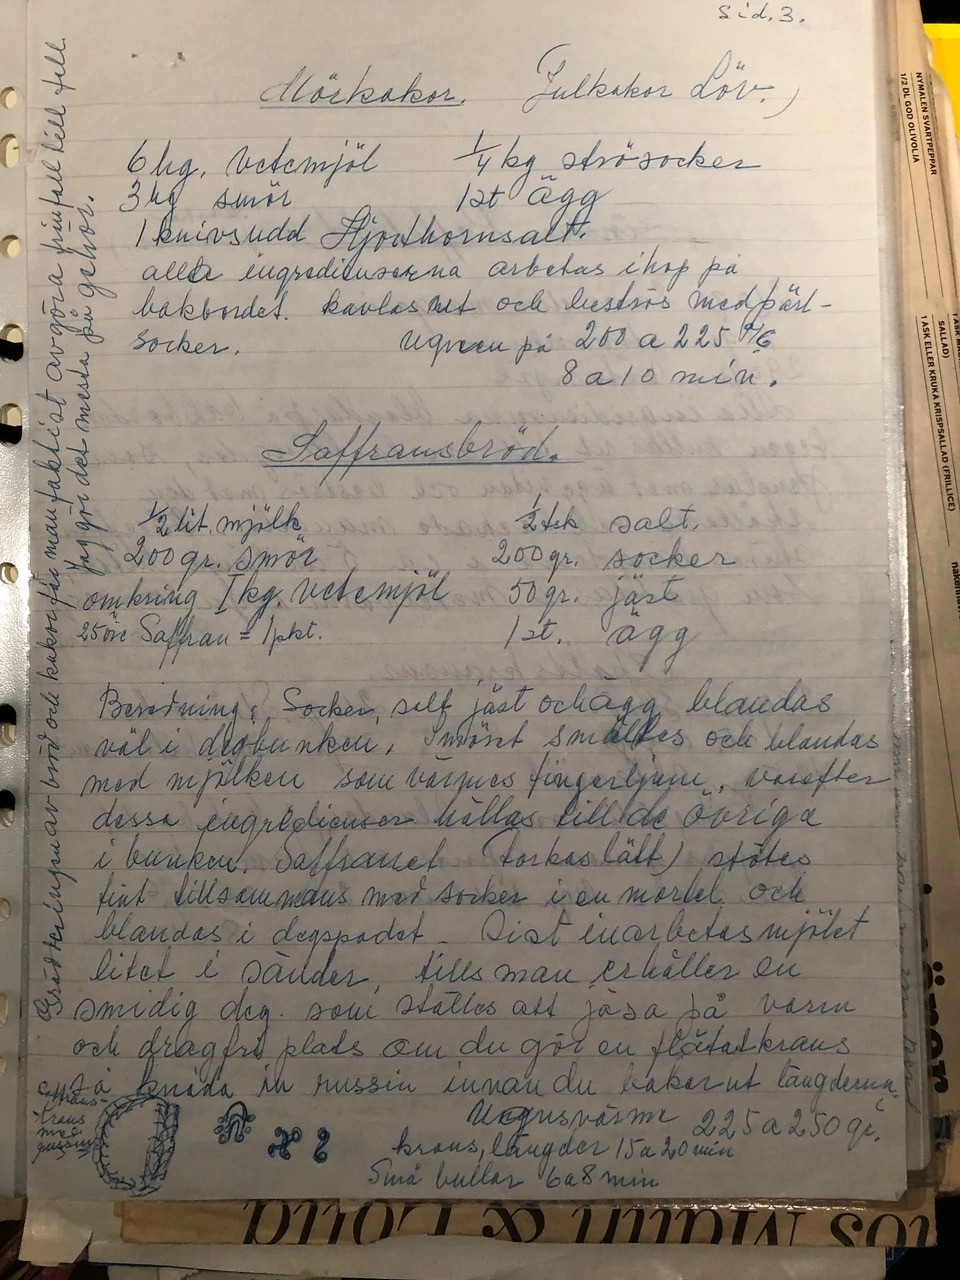 sid. 3.
Mörkakor. (Julkakor Löv.)
6 hg. vetemjöl 1/4 kg strösocker
3 hg smör 1 st ägg
1 knivsudd Hjorthornsalt.
alla ingredienserna arbetas ihop på
bakbordet. kavlas ut och beströs med pärl-
socker. Ugnen på 200 a 225 %
8 a 10 min.
Saffransbröd.
1/2 lit. mjölk 1/2 tsk salt.
200 gr. smör 200 gr. socker
omkring 1 kg. vetemjöl 50 gr. jäst
25 öre Saffran = 1 pkt. 1 st. ägg
Beredning: Socker, salt jäst och ägg blandas
väl i degbunken. Smöret smältes och blandas
med mjölken som värmes fingerljum, varefter
dessa ingredienser hällas till de övriga
i bunken. Saffranet (torkas lätt) stötes
fint tillsammans med socker i en mortel och
blandas i degspadet. Sist inarbetas mjölet
litet i sänder, tills man erhåller en
smidig deg. som ställes att jäsa på varm
och dragfri plats om du gör en flätat krans
så knåda in russin innan du bakar ut längderna
Ugnsvärme 225 a 250 gr.
krans, längder 15 a 20 min
Små bullar 6 a 8 min
krans
med
russin
Gräddningen av bröd och kakor får man faktist avgöra från fall till fall.
Jag gör det mesta på gehör.
NYMALEN SVARTPEPPAR
1/2 DL GOD OLIVOLJA
SALLAD)
1 ASK ELLER KRUKA KRISPSALLAD (FRILLICE)